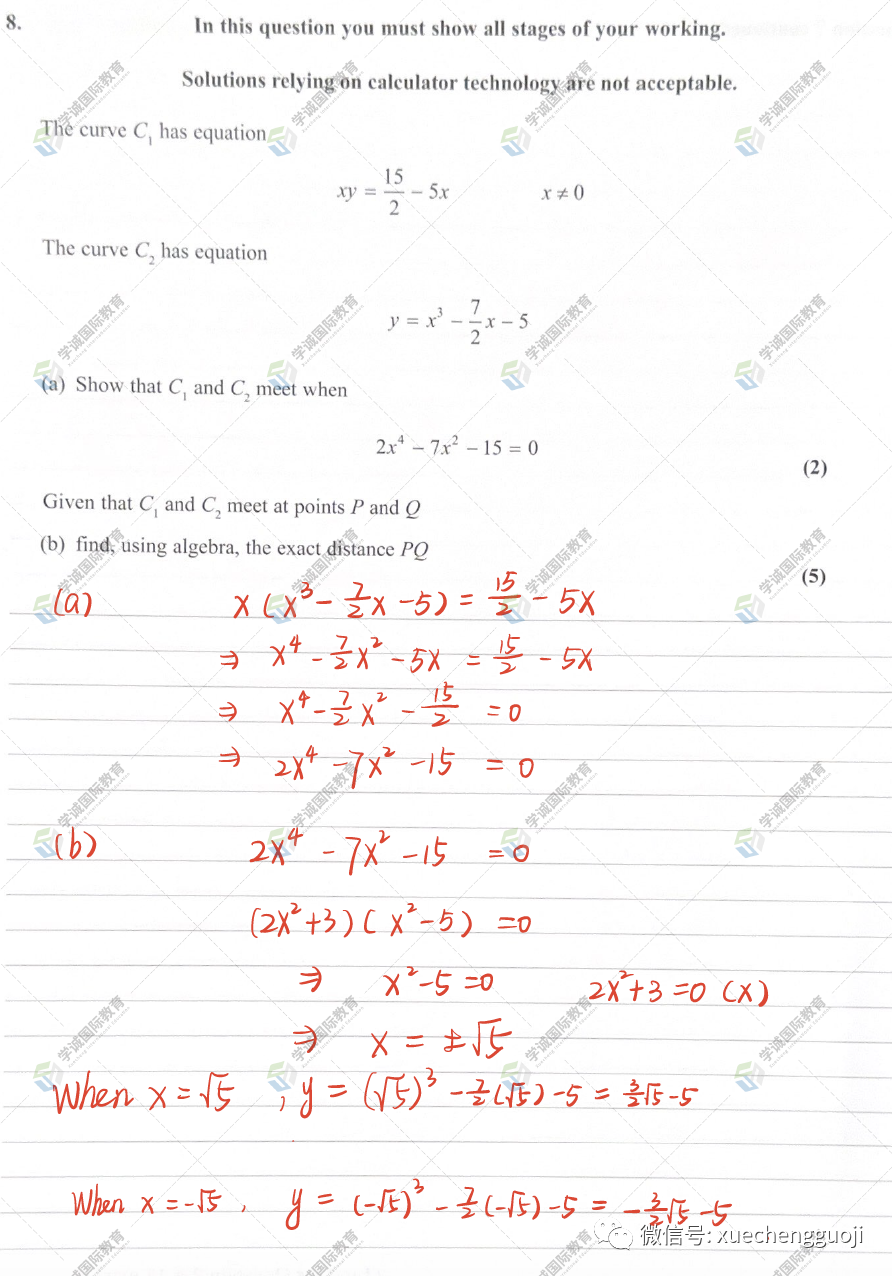 8.
In this question you must show all stages of your working.
Solutions relying on calculator technology are not acceptable.
The curve C₁ has equation
xy = 15/2 − 5x x ≠ 0
The curve C₂ has equation
y = x³ − 7/2 x − 5
(a) Show that C₁ and C₂ meet when
2x⁴ − 7x² − 15 = 0
(2)
Given that C₁ and C₂ meet at points P and Q
(b) find, using algebra, the exact distance PQ
(5)
(a) x(x³ − 7/2 x − 5) = 15/2 − 5x
⇒ x⁴ − 7/2 x² − 5x = 15/2 − 5x
⇒ x⁴ − 7/2 x² − 15/2 = 0
⇒ 2x⁴ − 7x² − 15 = 0
(b) 2x⁴ − 7x² − 15 = 0
(2x² + 3)(x² − 5) = 0
⇒ x² − 5 = 0 2x² + 3 = 0 (x)
⇒ x = ±√5
When x = √5 , y = (√5)³ − 7/2(√5) − 5 = 3/2√5 − 5
When x = −√5 , y = (−√5)³ − 7/2(−√5) − 5 = −3/2√5 − 5
微信号: xuechengguoji
学诚国际教育